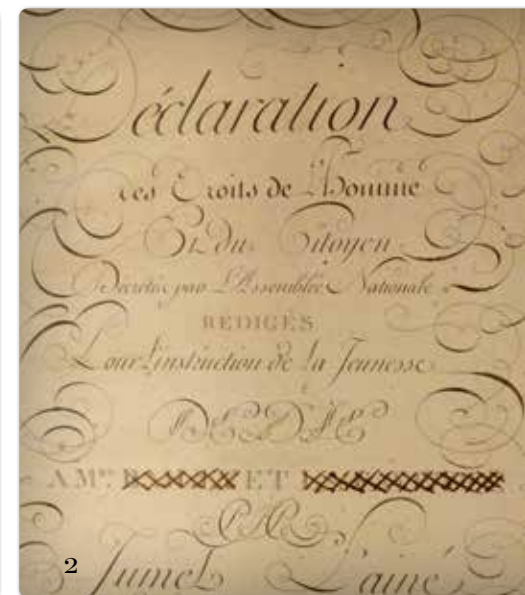 Déclaration
des Droits de L'Homme
Et du Citoyen
Décrétés par L'Assemblée Nationale
REDIGÉS
Pour L'instruction de la Jeunesse
DEDIÉ
A Mrs ET
PAR
Jumel L'ainé
2